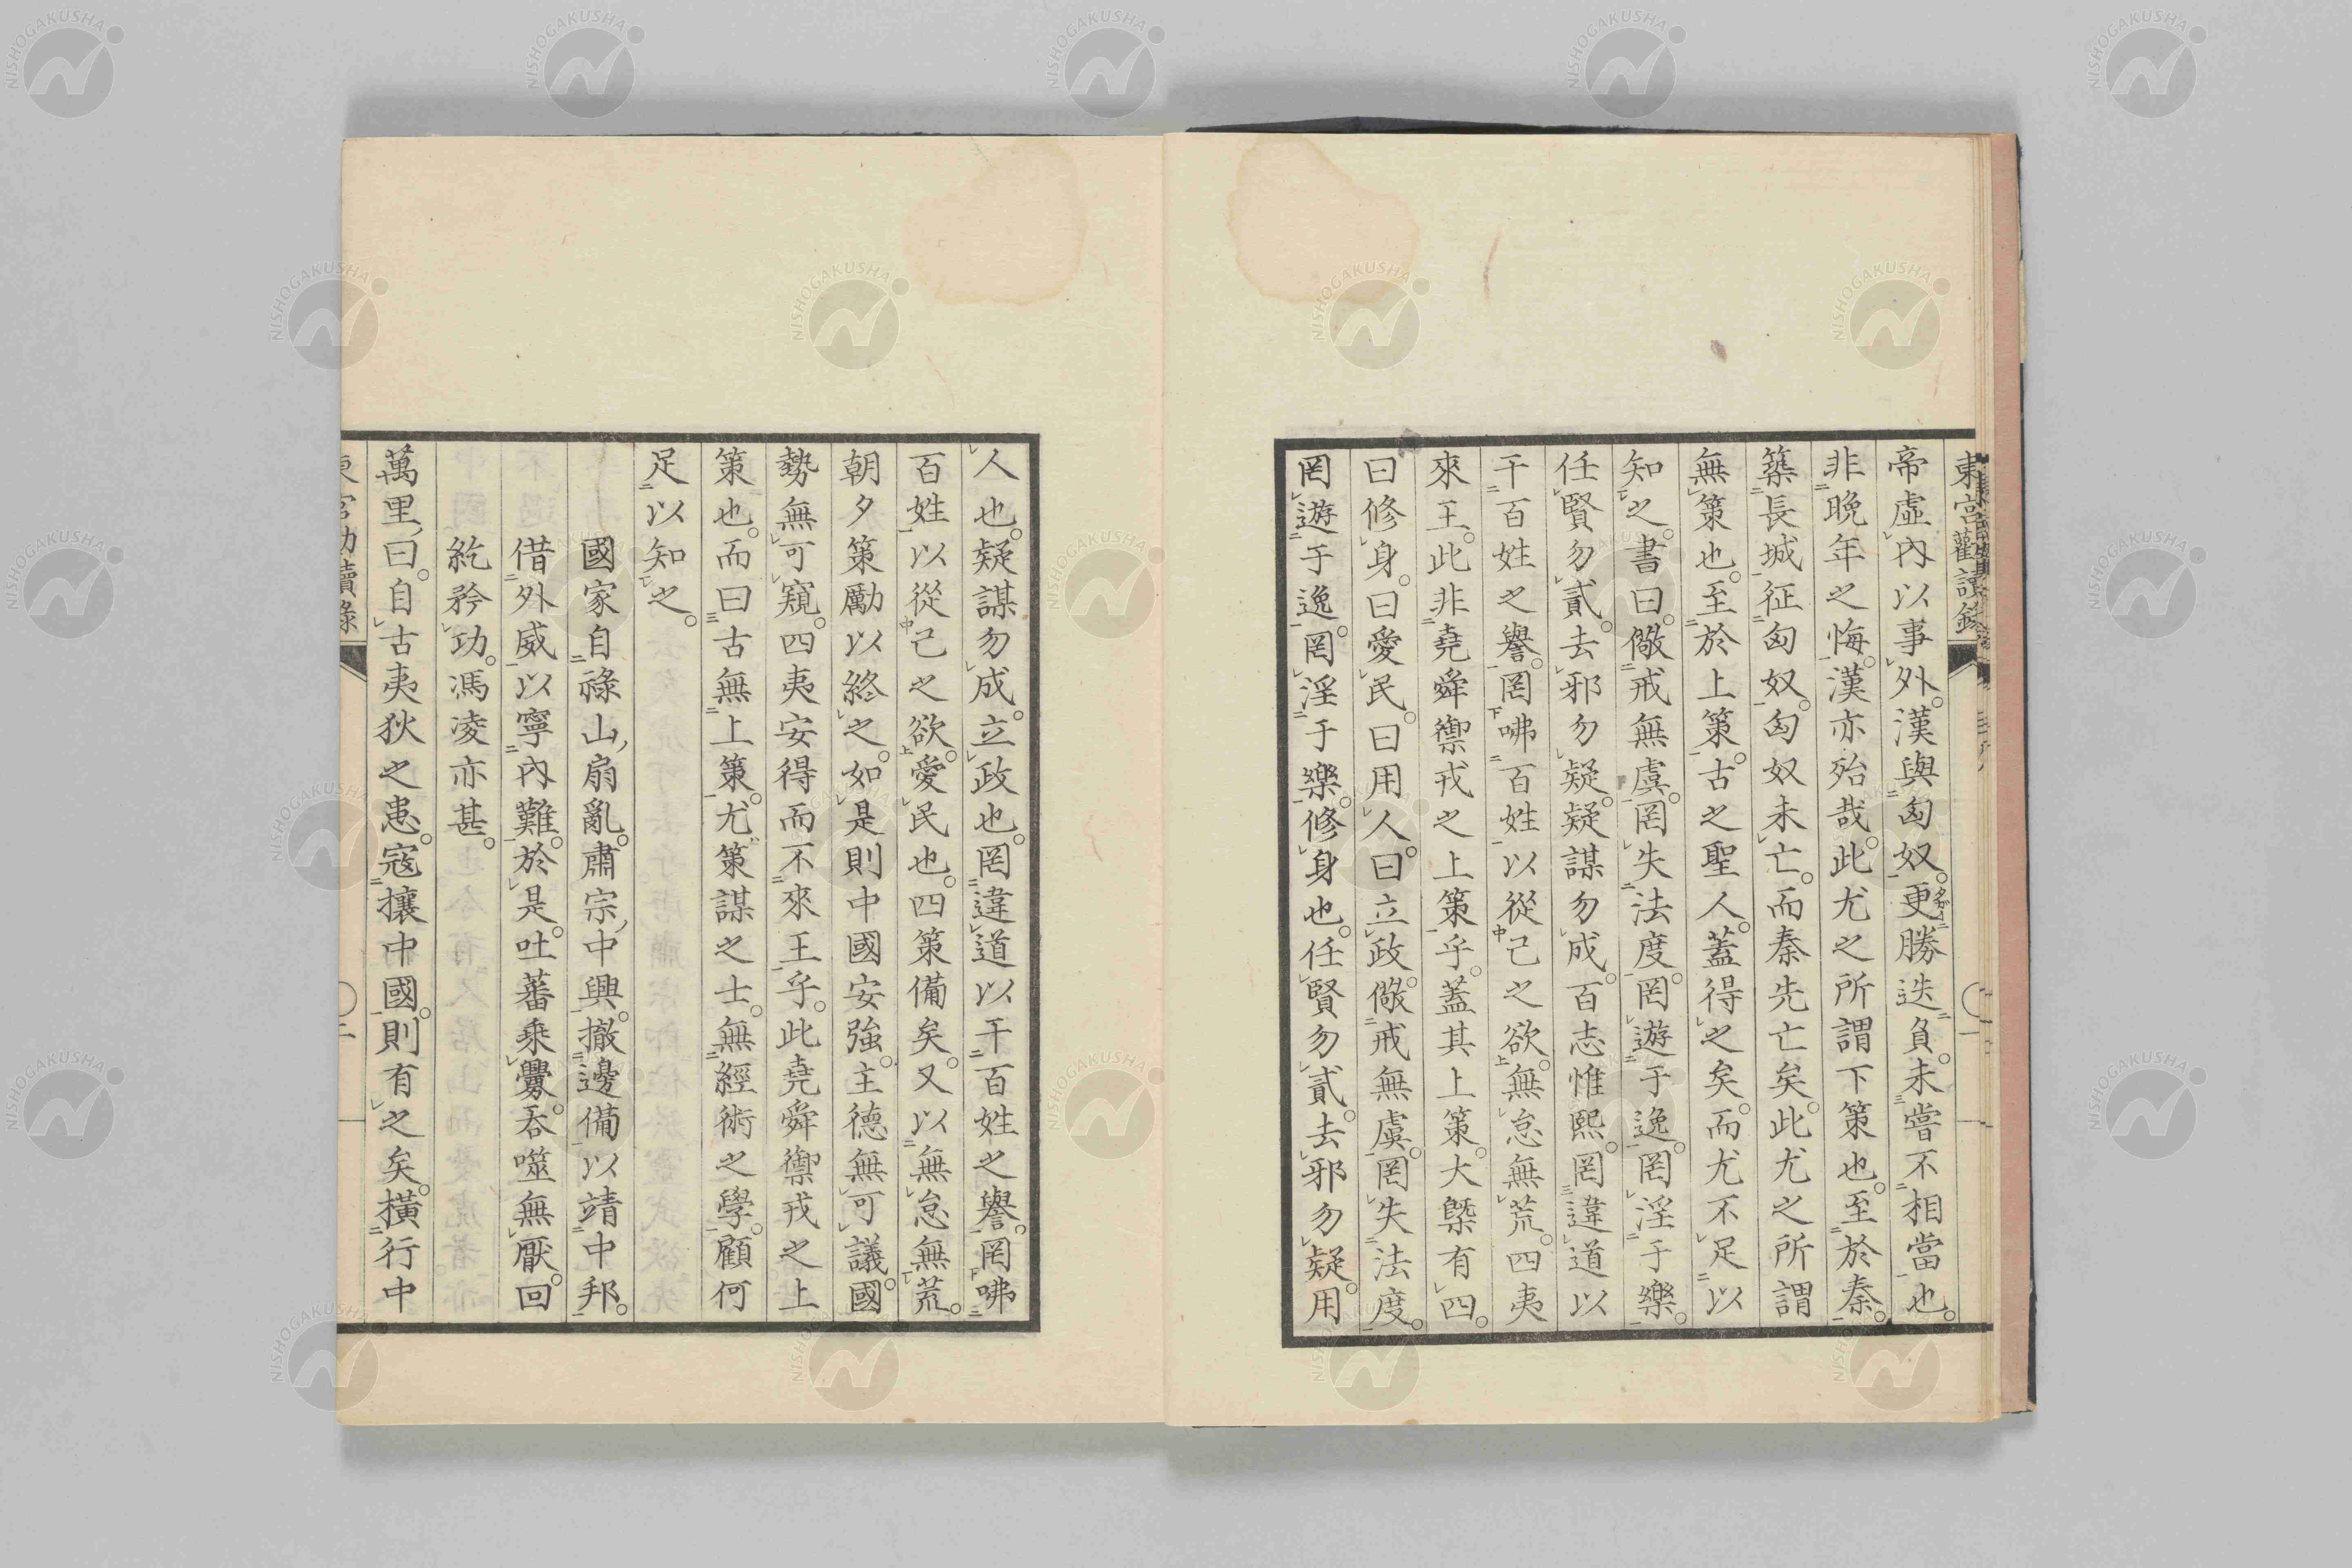 東宮勸讀錄
帝虛內以事外。漢與匈奴。更勝迭負。未嘗不相當也。
非晚年之悔。漢亦殆哉。此尤之所謂下策也。至於秦。
築長城征匈奴。匈奴未亡。而秦先亡矣。此尤之所謂
無策也。至於上策。古之聖人。蓋得之矣。而尤不足以
知之。書曰。儆戒無虞。罔失法度。罔遊于逸。罔淫于樂。
任賢勿貳。去邪勿疑。疑謀勿成。百志惟熙。罔違道以
干百姓之譽。罔咈百姓以從己之欲。無怠無荒。四夷
來王。此非堯舜禦戎之上策乎。蓋其上策。大槩有四。
曰修身。曰愛民。曰用人。曰立政。儆戒無虞。罔失法度。
罔遊于逸。罔淫于樂。修身也。任賢勿貳。去邪勿疑。用
人也。疑謀勿成。立政也。罔違道以干百姓之譽。罔咈
百姓以從己之欲。愛民也。四策備矣。又以無怠無荒。
朝夕策勵以終之。如是則中國安強。主德無可議。國
勢無可窺。四夷安得而不來王乎。此堯舜禦戎之上
策也。而曰古無上策。尤策謀之士。無經術之學。顧何
足以知之。
國家自祿山扇亂。肅宗中興。撤邊備以靖中邦。
借外威以寧內難。於是。吐蕃乘釁。吞噬無厭。回
紇矜功。馮凌亦甚。
萬里曰。自古夷狄之患。寇攘中國。則有之矣。橫行中
東宮勸讀錄
NISHOGAKUSHA